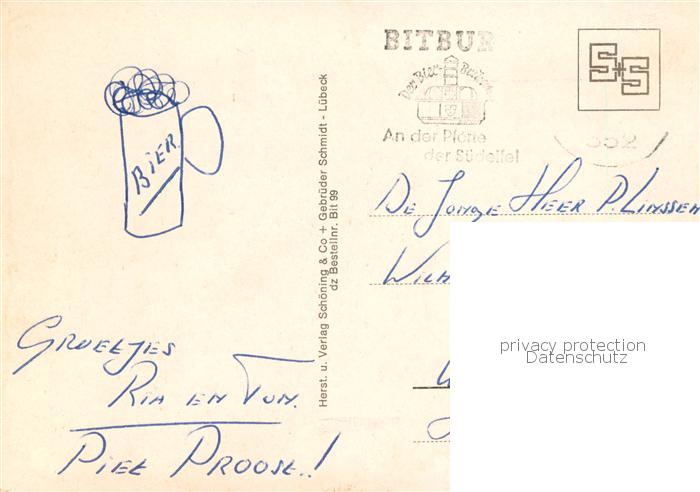 BITBUR
S+S
Der Bier-
An der Pforte
der Südeifel
552
BIER
Herst. u. Verlag Schöning & Co + Gebrüder Schmidt - Lübeck
dz Bestellnr. Bit 99
DE JONGE HEER P. LINSSEN
WILH
privacy protection
Datenschutz
GROETJES
RIA EN TON.
PIET PROOST..!